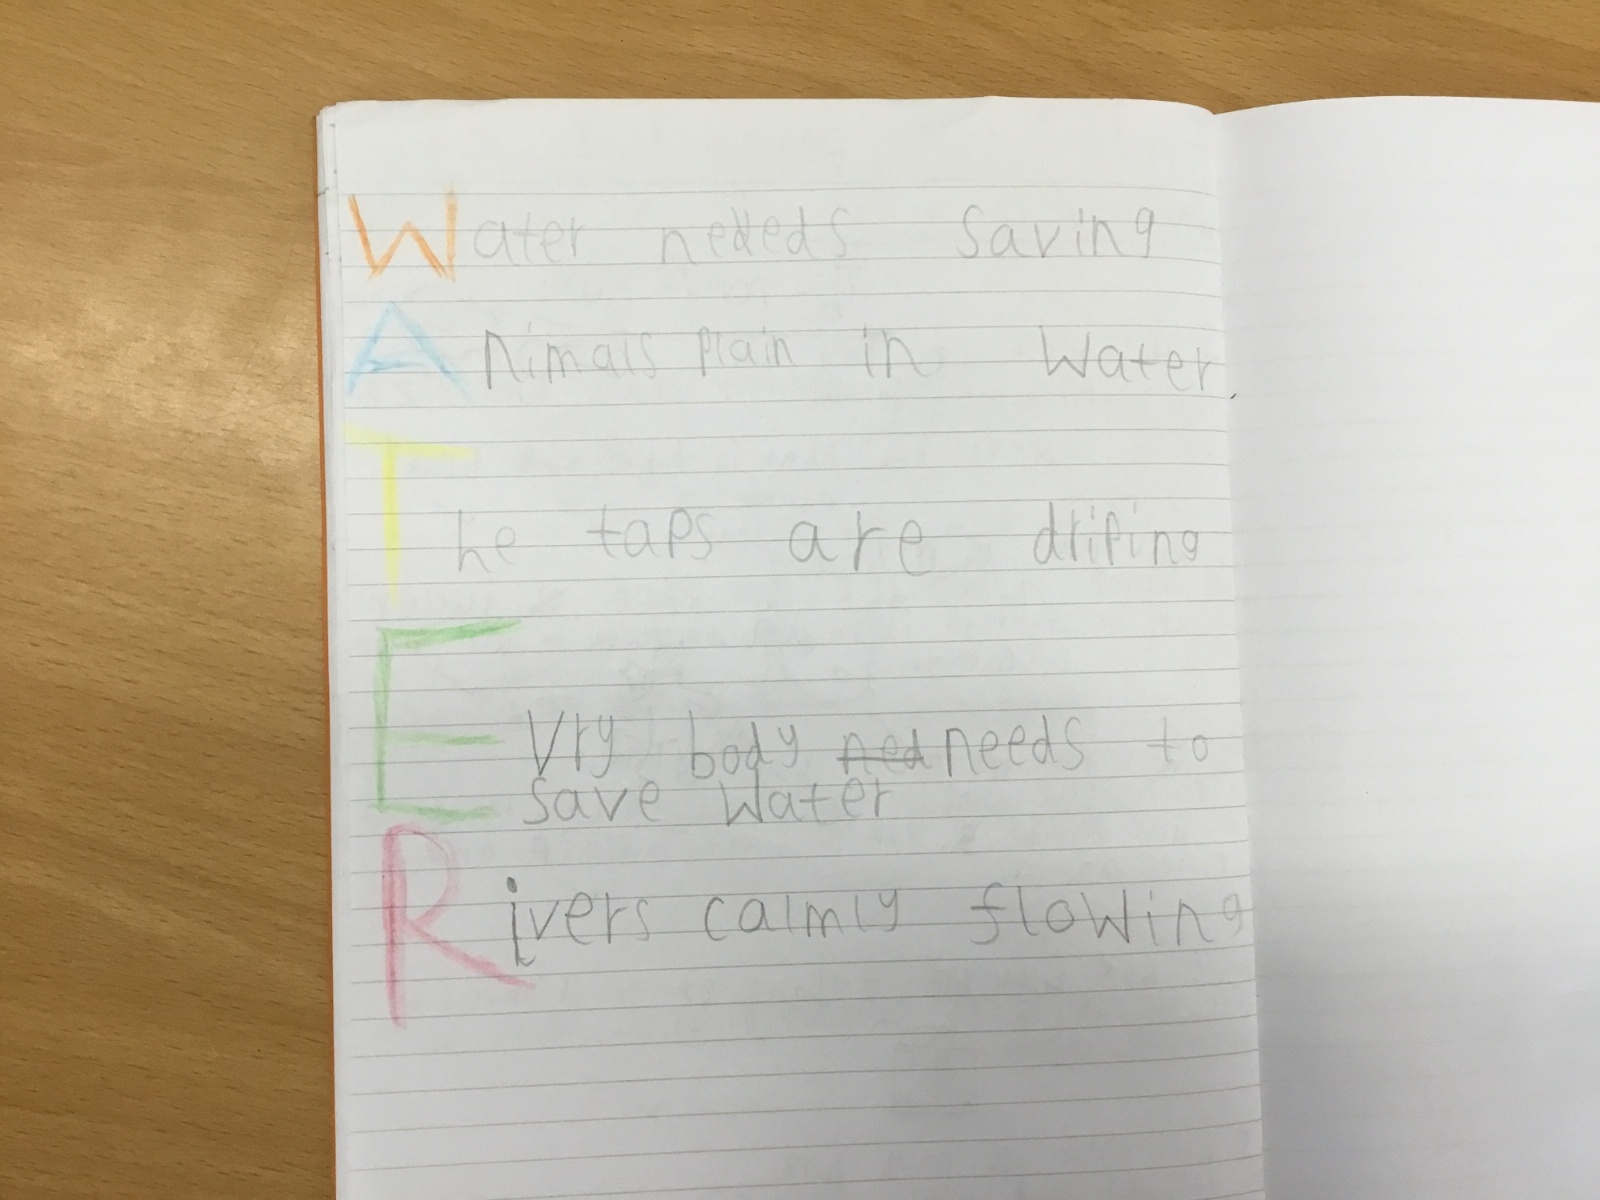 Water needs saving
Animals plain in water
The taps are driping
Evry body ned needs to
save water
Rivers calmly flowing